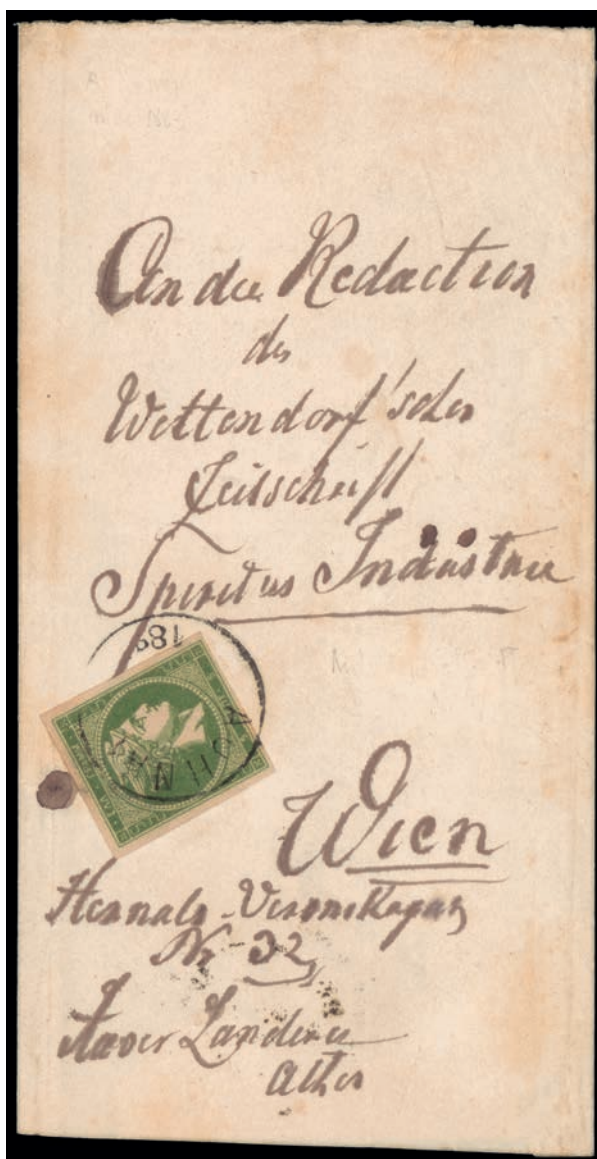 An die Redaction
der
Wettendorf'schen
Zeitschrift
Spiritus Industrie
189
ΑΘΗΝΑΙ
Wien
Hernals-Veronikagasse
Nr 32
Xaver Landerer
Athen